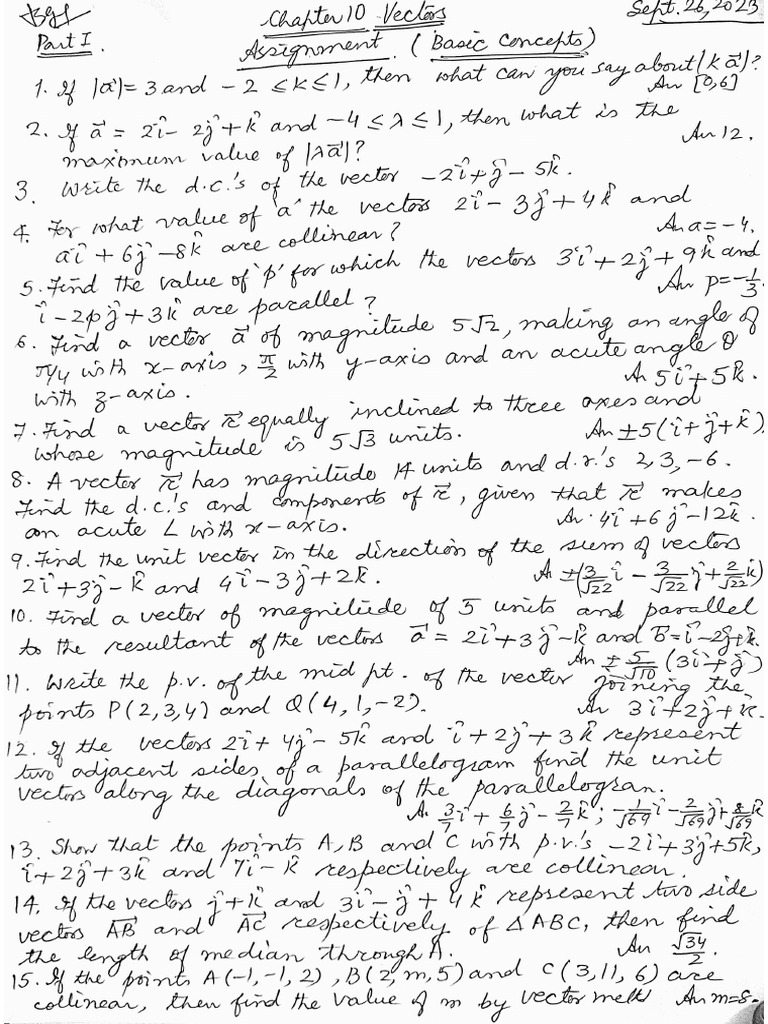 Chapter 10 Vectors Sept. 26, 2023
Part I. Assignment. (Basic Concepts)
1. If |a⃗| = 3 and -2 ≤ k ≤ 1, then what can you say about |k a⃗|?
An [0,6]
2. If a⃗ = 2î - 2ĵ + k̂ and -4 ≤ λ ≤ 1, then what is the
maximum value of |λa⃗|? An 12.
3. Write the d.c.'s of the vector -2î + ĵ - 5k̂.
4. For what value of 'a' the vectors 2î - 3ĵ + 4k̂ and
aî + 6ĵ - 8k̂ are collinear? An a = -4.
5. Find the value of 'p' for which the vectors 3î + 2ĵ + 9k̂ and
î - 2pĵ + 3k̂ are parallel? An p = -1/3
6. Find a vector a⃗ of magnitude 5√2, making an angle of
π/4 with x-axis, π/2 with y-axis and an acute angle θ
with z-axis. A 5î + 5k̂.
7. Find a vector r⃗ equally inclined to three axes and
whose magnitude is 5√3 units. An ±5(î + ĵ + k̂)
8. A vector r⃗ has magnitude 14 units and d.r.'s 2, 3, -6.
Find the d.c.'s and components of r⃗, given that r⃗ makes
an acute ∠ with x-axis. An. 4î + 6ĵ - 12k̂.
9. Find the unit vector in the direction of the sum of vectors
2î + 3ĵ - k̂ and 4î - 3ĵ + 2k̂. A ±(3/√22 î - 3/√22 ĵ + 2/√22 k̂)
10. Find a vector of magnitude of 5 units and parallel
to the resultant of the vectors a⃗ = 2î + 3ĵ - k̂ and b⃗ = î - 2ĵ + k̂.
An ± 5/√10 (3î + ĵ)
11. Write the p.v. of the mid pt. of the vector joining the
points P(2,3,4) and Q(4,1,-2). An 3î + 2ĵ + k̂.
12. If the vectors 2î + 4ĵ - 5k̂ and î + 2ĵ + 3k̂ represent
two adjacent sides of a parallelogram find the unit
vectors along the diagonals of the parallelogram.
A. 3/7 î + 6/7 ĵ - 2/7 k̂ ; -1/√69 î - 2/√69 ĵ + 8/√69 k̂
13. Show that the points A, B and C with p.v.'s -2î + 3ĵ + 5k̂,
î + 2ĵ + 3k̂ and 7î - k̂ respectively are collinear.
14. If the vectors ĵ + k̂ and 3î - ĵ + 4k̂ represent two side
vectors AB⃗ and AC⃗ respectively of ΔABC, then find
the length of median through A. An √34/2.
15. If the points A(-1,-1,2), B(2,m,5) and C(3,11,6) are
collinear, then find the value of m by vector meth An m=8.